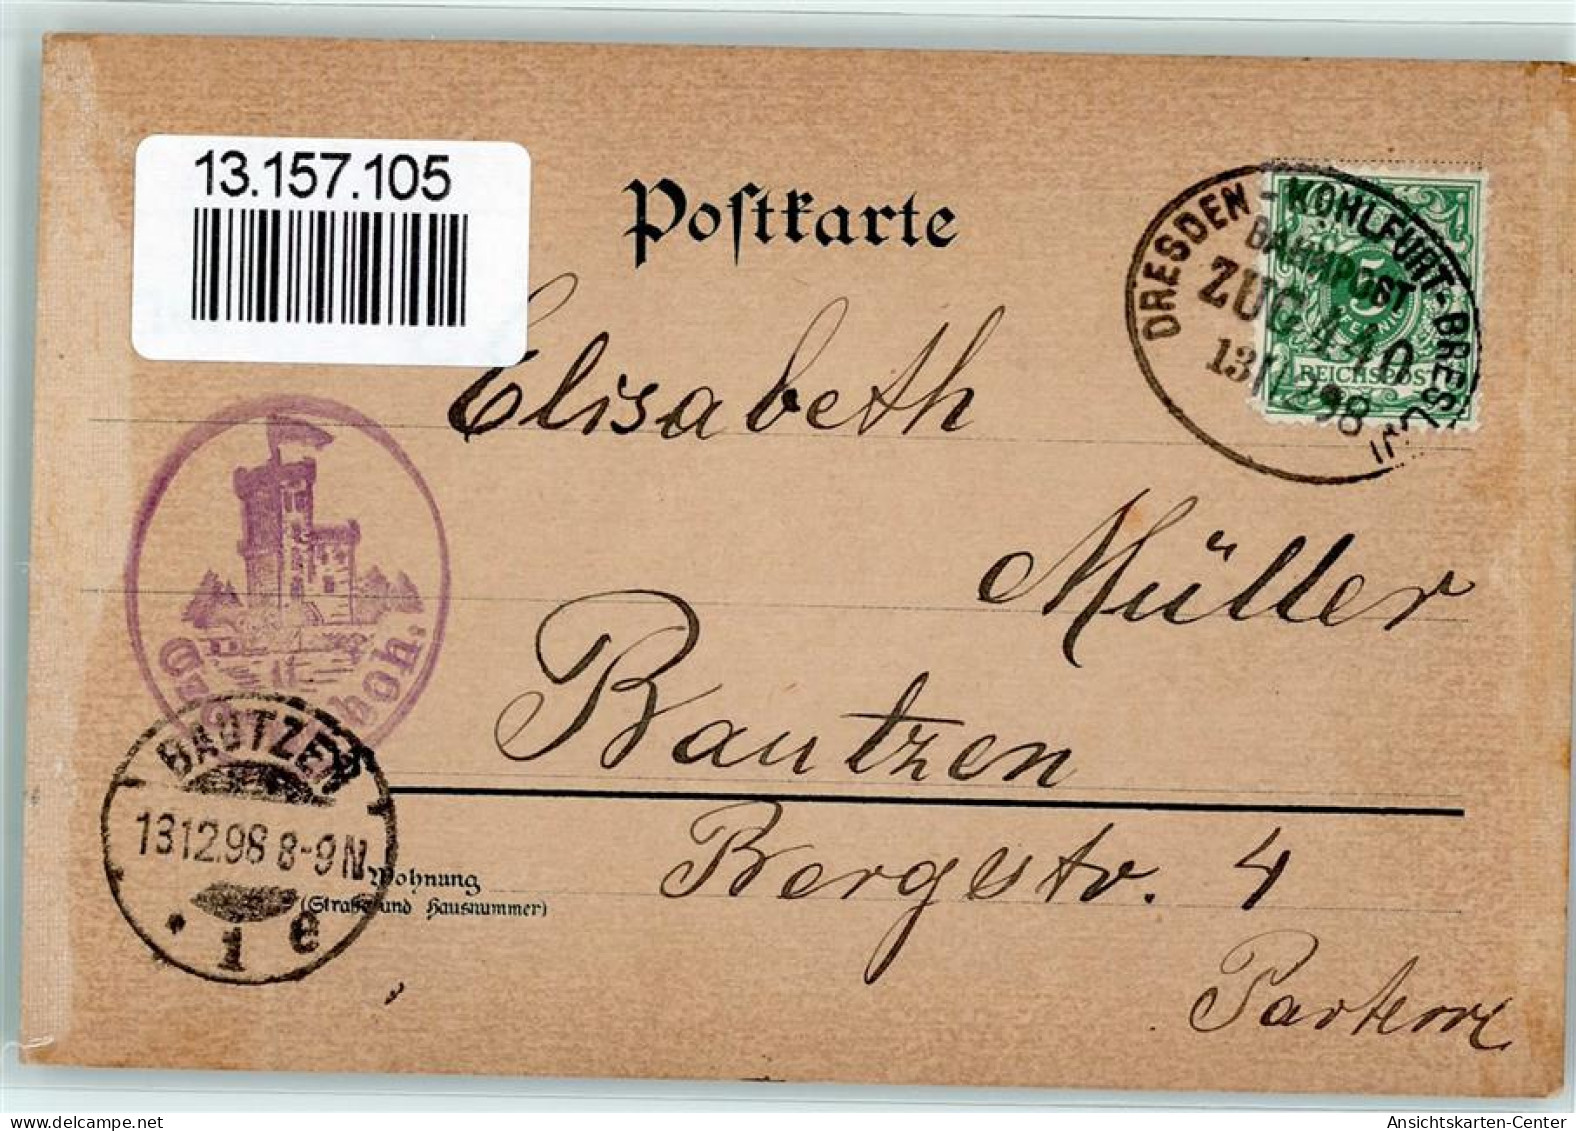 13.157.105
Postkarte
DRESDEN - KOHLFURT - BRESLAU
BAHNPOST
ZUG 440
13/12 98
5
PFENNIG
REICHSPOST
Elisabeth
Müller
Bautzen
boh.
BAUTZEN
13 12.98 8-9 N
1 e
Wohnung
(Straße und Hausnummer)
Bergstr. 4
Parterre
Ansichtskarten-Center